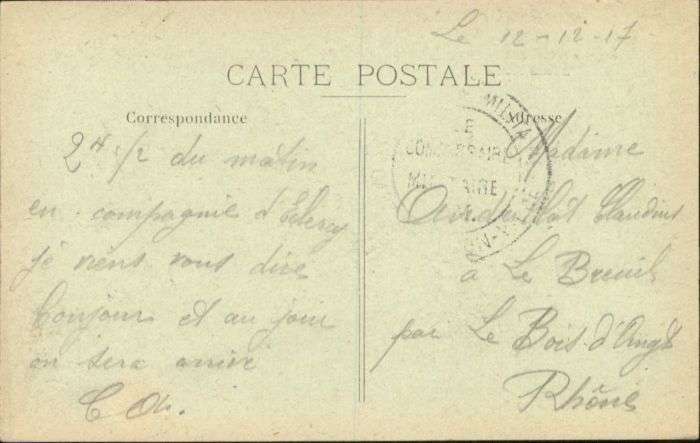 Le 12-12-17
CARTE POSTALE
Correspondance
2H 1/2 du matin
en compagnie d'
je viens vous dire
bonjour et au jour
on sera arrivé
C
Adresse
Madame
Claudius
à Le Breuil
par Le Bois-d'Oingt
Rhône
LE
COMMISSAIRE
MILITAIRE